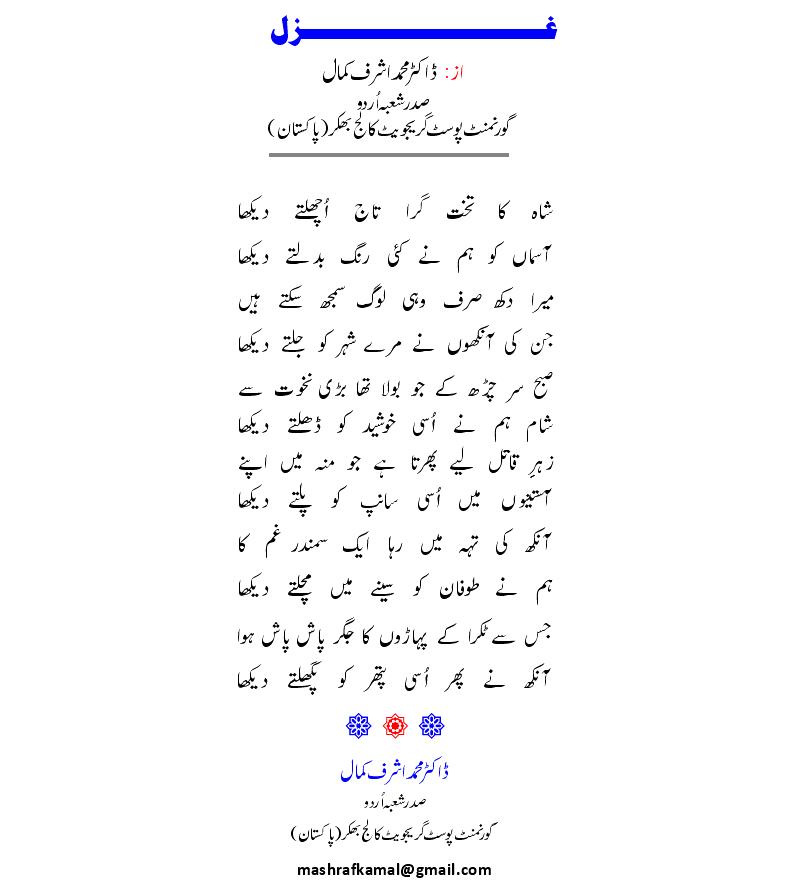 غزل
از: ڈاکٹر محمد اشرف کمال
صدر شعبہ اُردو
گورنمنٹ پوسٹ گریجویٹ کالج بھکر (پاکستان)
شاہ کا تخت گرا تاج اُچھلتے دیکھا
آسماں کو ہم نے کئی رنگ بدلتے دیکھا
میرا دکھ صرف وہی لوگ سمجھ سکتے ہیں
جن کی آنکھوں نے مرے شہر کو جلتے دیکھا
صبح سر چڑھ کے جو بولا تھا بڑی نخوت سے
شام ہم نے اُسی خوشید کو ڈھلتے دیکھا
زہرِ قاتل لیے پھرتا ہے جو منہ میں اپنے
آستینوں میں اُسی سانپ کو پلتے دیکھا
آنکھ کی تہہ میں رہا ایک سمندر غم کا
ہم نے طوفان کو سینے میں مچلتے دیکھا
جس سے ٹکرا کے پہاڑوں کا جگر پاش پاش ہوا
آنکھ نے پھر اُسی پتھر کو پگھلتے دیکھا
ڈاکٹر محمد اشرف کمال
صدر شعبہ اُردو
گورنمنٹ پوسٹ گریجویٹ کالج بھکر (پاکستان)
mashrafkamal@gmail.com